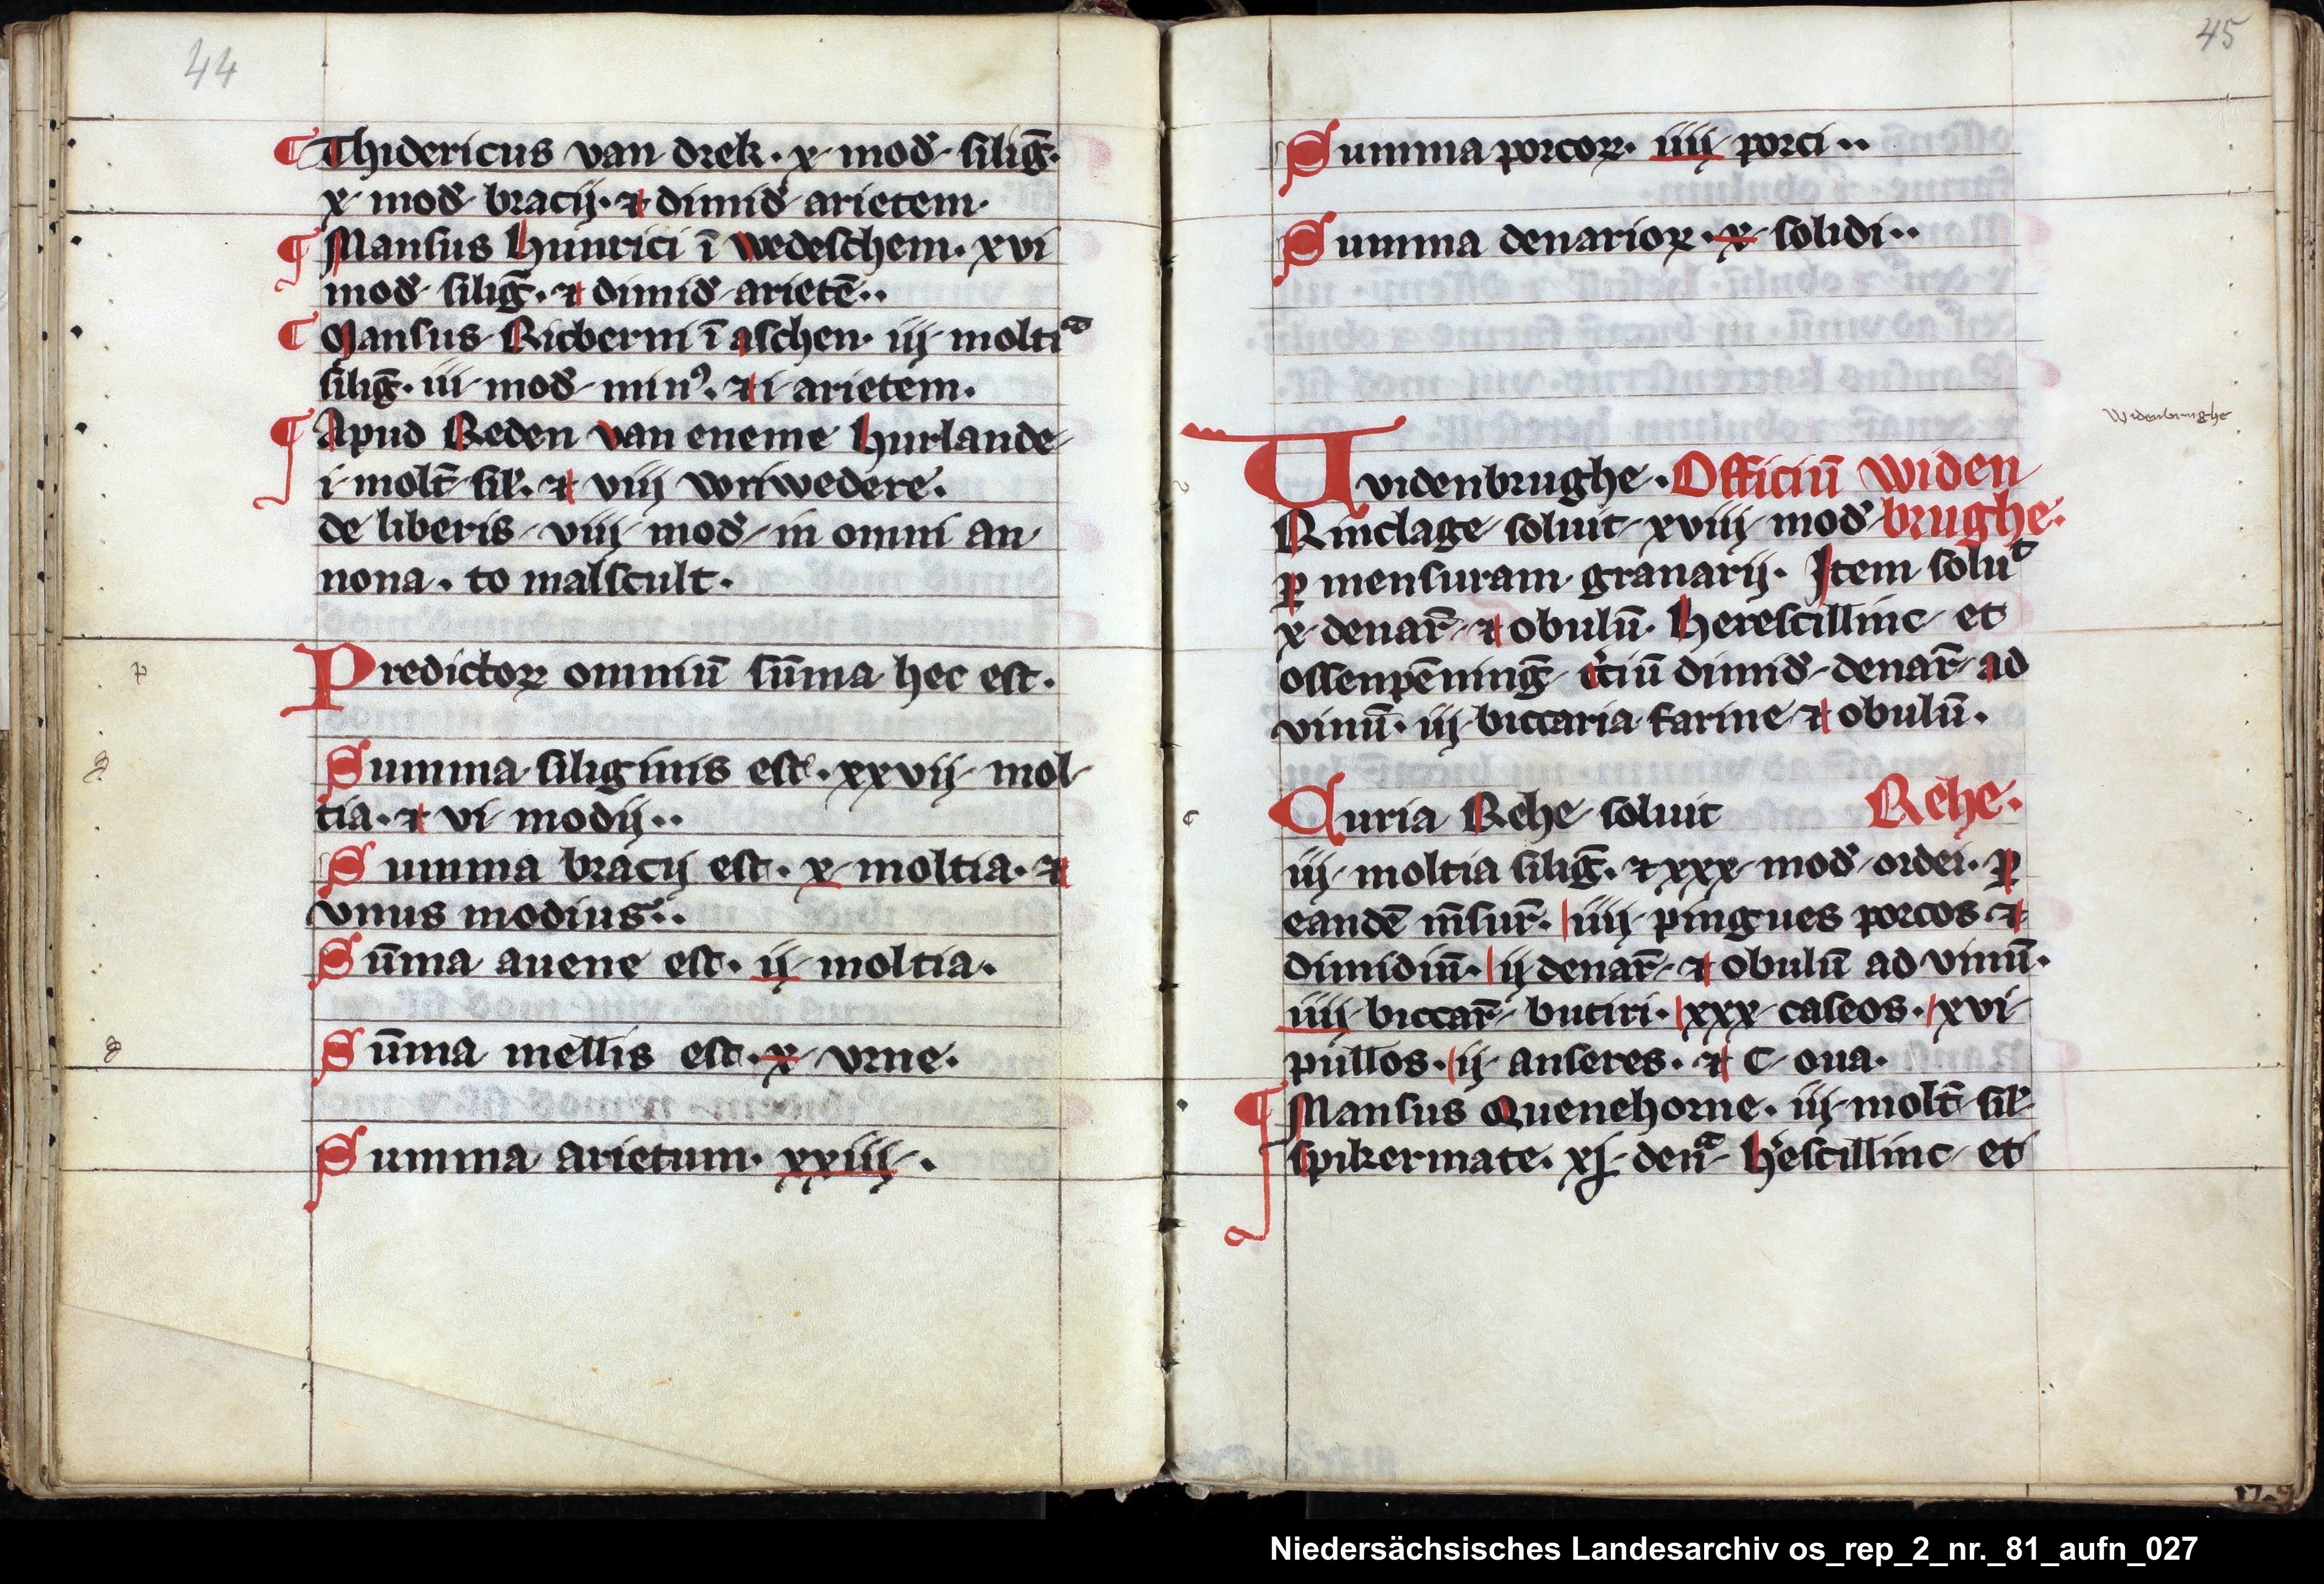 44
¶ Thidericus van drek. x mod̛ silig̅.
x mod̛ bracij. ⁊ dimid̛ arietem
¶ Mansus Hinrici ī wedeschem. xvi
mod̛ silig̅. ⁊ dimid̛ arietē..
¶ Mansus Ricberni ī aschen. iij molti
silig̅. iii mod̛ minꝰ. ⁊ i arietem.
¶ Apud Reden van eneme hurlande
i molt̅ sil̛. ⁊ viij wriwedere.
de liberis viij mod̛ in omni an
nona. to malscult.
Predictoꝝ omniū sūma hec est.
Summa siliginis est. xxvij mol
tia. ⁊ vi modij..
Summa bracij est. x moltia. ⁊
vnus modius..
Sūma auene est. ij moltia.
Sūma mellis est. x vrne.
Summa arietum. xxiiij.
45
Summa porcoꝝ. iiij porci..
Summa denarioꝝ. x solidi..
Widenbrughe
Uvidenbrughe. Officiū Widen
Rinclage soluit xviij mod̛ brughe.
ꝑ mensuram granarij. Item solut
x denar̅ ⁊ obulū. Herescillinc et
ossenpēning̅ t̛ciū dimid̛ denar̅ ad
vinū. iij biccaria farine ⁊ obulū.
Curia Rehe soluit Rehe.
iij moltia silig̅. ⁊ xxx mod̛ ordei. ꝑ
eandē m̅sur̅. iiij pingues porcos ⁊
dimidiū. ij denar̅ ⁊ obulū ad vinū.
iiij biccar̅ butiri. xxx caseos. xvi
pullos. ij anseres. ⁊ C oua.
¶ Mansus Quenehorne. iij molt̅ sil̛
spikermate. xj den̅ H̛escillinc et
Niedersächsisches Landesarchiv os_rep_2_nr._81_aufn_027